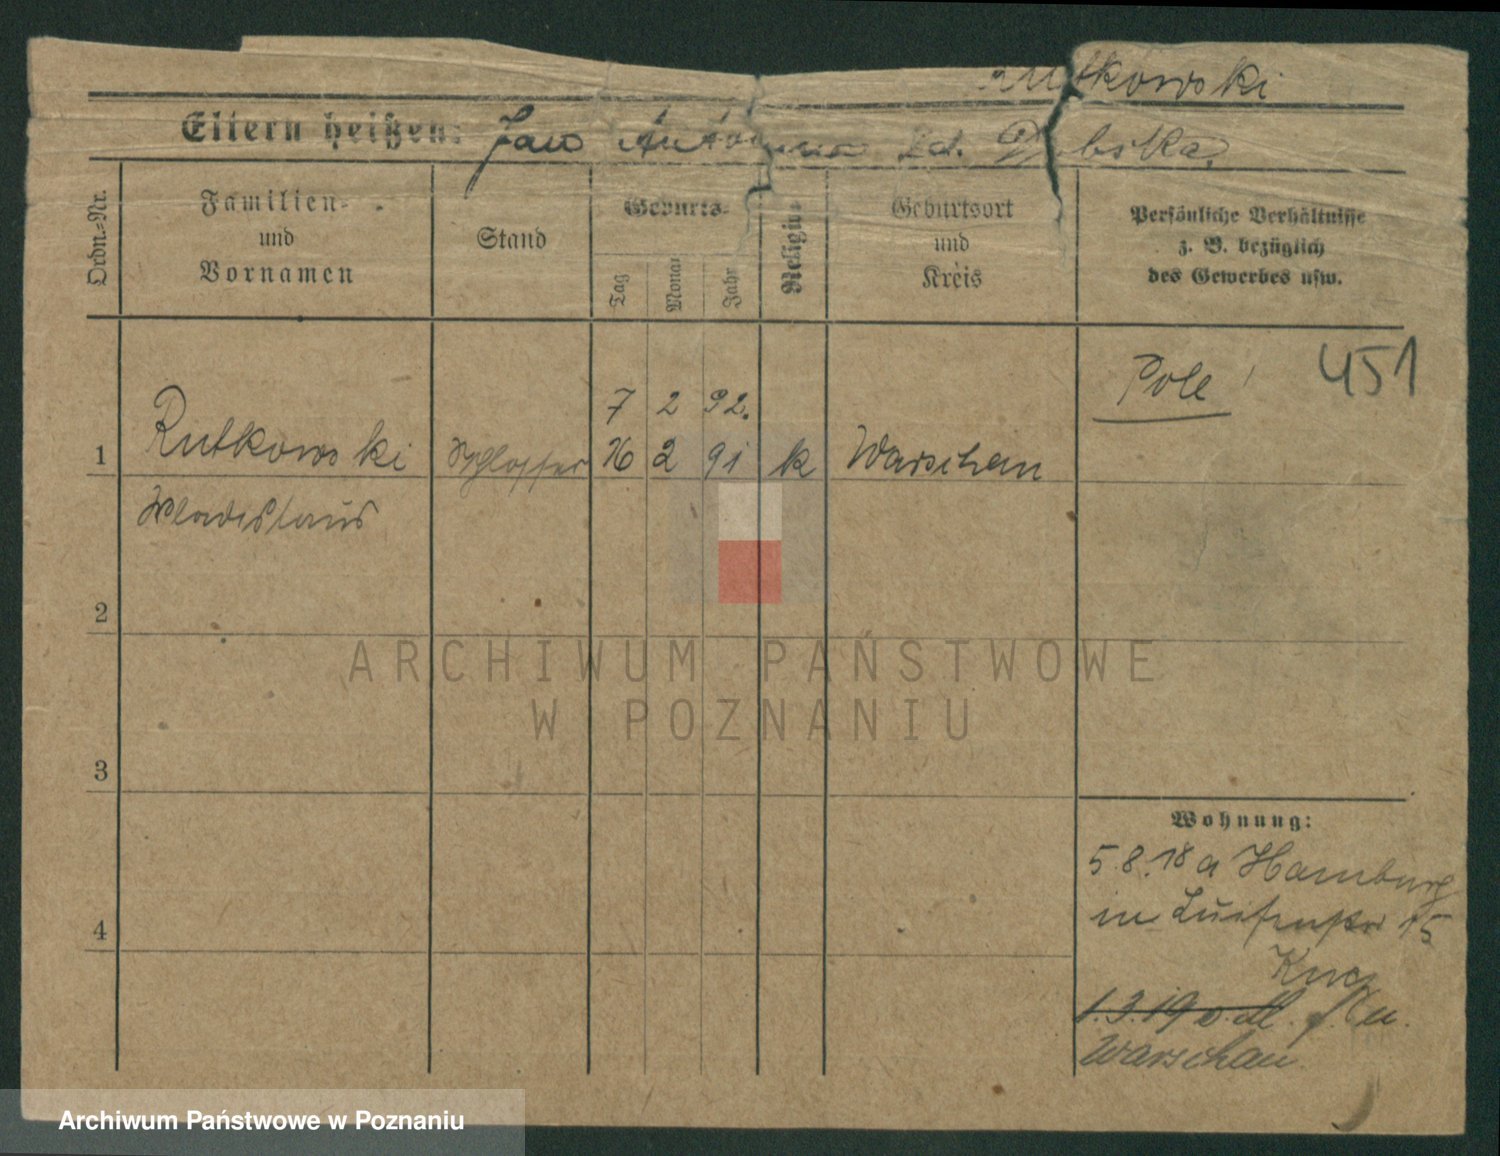 Rutkowski
Eltern heißen: Jan Antonina
Ordn.-Nr.
Familien-
und
Vornamen
Stand
Geburts-
Tag
Monat
Jahr
Religion
Geburtsort
und
Kreis
Persönliche Verhältnisse
z. B. bezüglich
des Gewerbes usw.
Pole 451
7 2 92.
1 Rutkowski Schlosser 16 2 91 k Warschau
Wladislaus
2
3
4
Wohnung:
5.8.18 a Hamburg
in Luisenstr 15
1.3.19
Warschau
ARCHIWUM PAŃSTWOWE
W POZNANIU
Archiwum Państwowe w Poznaniu